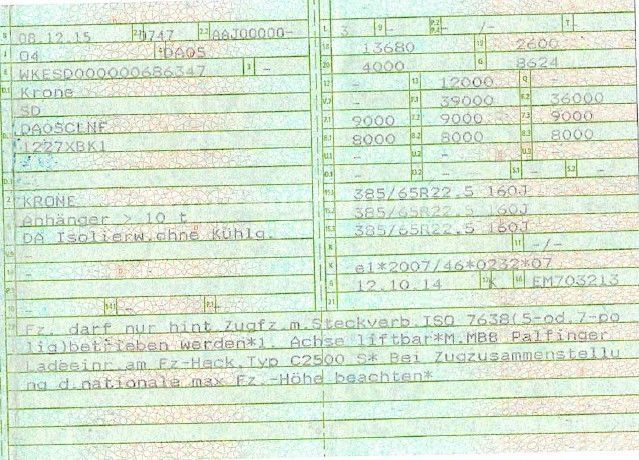 B 08.12.15 2.1 0747 2.2 AAJ00000-
J 04 4 DA05
E WKESD000000686347 3 -
D.1 Krone
SD
DA05CLNF
1227XBK1
-
2 KRONE
5 Anhänger > 10 t
DA Isolierw.ohne Kühlg.
-
-
- -
L 3 9 - P.2 P.4 - /- T -
18 13680 19 2600
20 4000 G 8624
12 - 13 12000 Q -
V.7 - F.1 39000 F.2 36000
7.1 9000 7.2 9000 7.3 9000
8.1 8000 8.2 8000 8.3 8000
U.1 - U.2 - U.3 -
O.1 - O.2 - S.1 - S.2 -
15.1 385/65R22.5 160J
15.2 385/65R22.5 160J
15.3 385/65R22.5 160J
R - 11 -/-
K e1*2007/46*0232*07
6 12.10.14 17 K 16 EM703213
21
22 Fz. darf nur hint.Zugfz.m.Steckverb.ISO 7638(5-od.7-po
lig)betrieben werden*1. Achse liftbar*M.MBB Palfinger
Ladeeinr.am Fz-Heck,Typ C2500 S* Bei Zugzusammenstellu
ng d.nationale max Fz.-Höhe beachten*